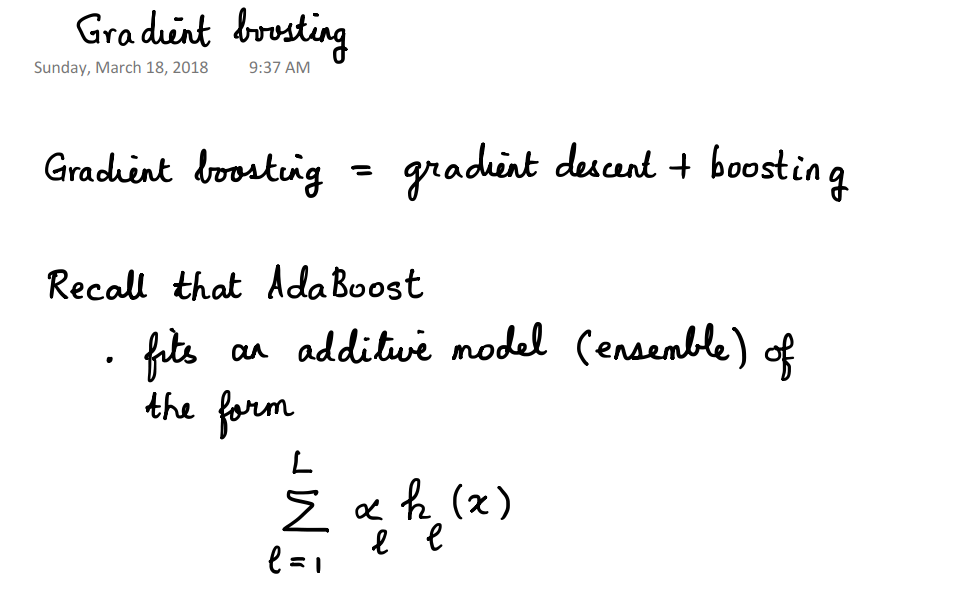 Gradient boosting
Sunday, March 18, 2018 9:37 AM
Gradient boosting = gradient descent + boosting
Recall that AdaBoost
. fits an additive model (ensemble) of
the form
L
Σ α_ℓ h_ℓ (x)
ℓ=1